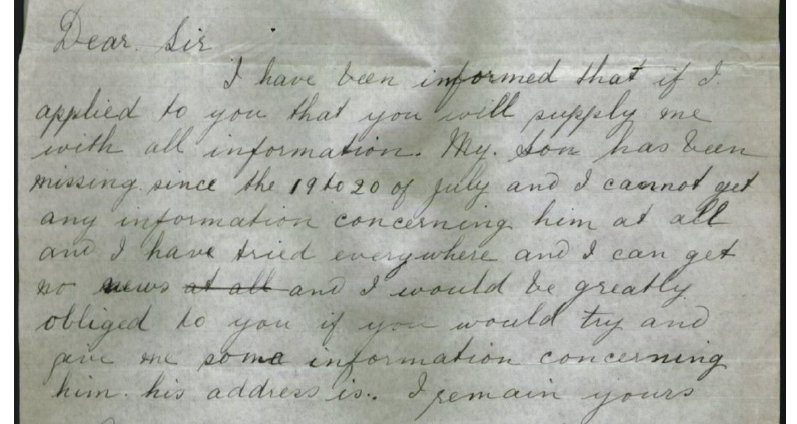 Dear Sir
I have been informed that if I
applied to you that you will supply me
with all information. My. Son has been
missing since the 19 to 20 of july and I cannot get
any information concerning him at all
and I have tried everywhere and I can get
no news at all and I would be greatly
obliged to you if you would try and
give me some information concerning
him. his address is.. I remain yours